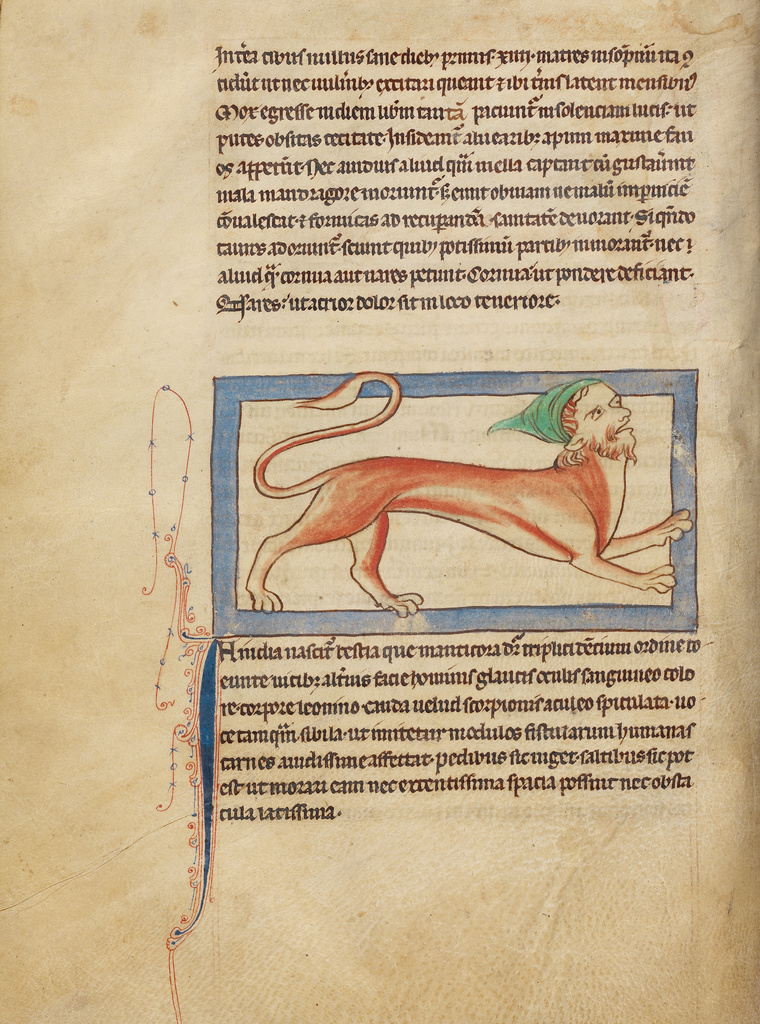 Int'ea cibus nullus sane dieb; primis xiiii matres in sopniu ita 
cidut ut nec uulnib; excitari queant & ibi latent mensibus
Mox egresse in diem lib'm tanta paciunt insolenciam lucis ut
putes obsitas cecitate. Insidiant aluearib; apium maxime fau
os appetut. Nec auidius aliud qm mella captant. cu gustauint
mala mandragore moriunt. S; eunt obuiam ne malu in pnicie
conualescat. & formicas ad recuperandā sanitate deuorant. Si qndo
tauros adoriunt. sciunt quib; potissimu partib; inmorant. nec
aliud qm cornua aut nares petunt. Cornua ut pondere deficiant.
Nares: ut acrior dolor sit in loco teneriore.
In india nascit bestia que manticora dr. triplici dentium ordine co
eunte uicib; alt'nis. facie hominis glaucis oculis sanguineo colo
re. corpore leonino. cauda uelud scorpionis aculeo spiculata. uo
ce tam sibila. ut imitetur modulos fistularum humanas
carnes auidissime affectat. pedibus sic uiget. saltibus sic pot
est ut morari eam nec extentissima spacia possint nec obsta
cula latissima.